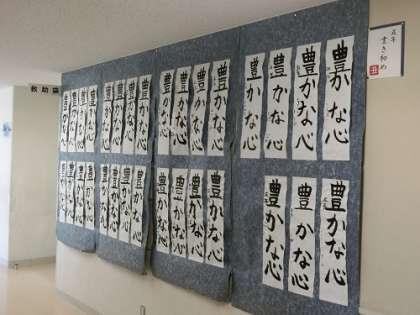 救助袋
五年
書き初め
豊かな心
豊かな心
豊かな心
豊かな心
豊かな心
豊かな心
豊かな心
豊かな心
豊かな心
豊かな心
豊かな心
豊かな心
豊かな心
豊かな心
豊かな心
豊かな心
豊かな心
豊かな心
豊かな心
豊かな心
豊かな心
豊かな心
豊かな心
豊かな心
豊かな心
豊かな心
豊かな心
豊かな心
豊かな心